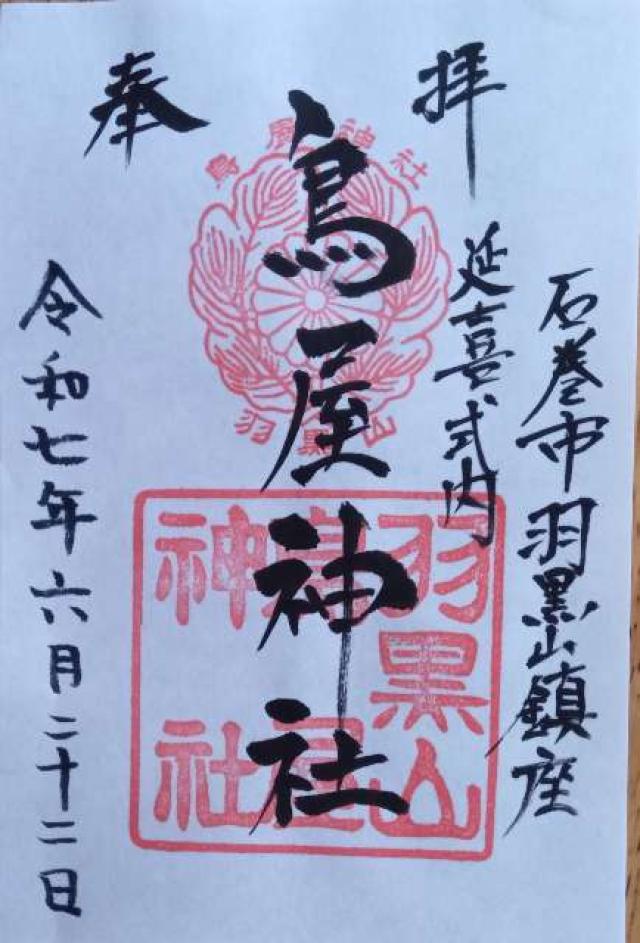 奉拝
石巻市羽黒山鎮座
延喜式内
鳥屋神社
令和七年六月二十二日
鳥屋神社
羽黒山
羽黒山
鳥屋
神社